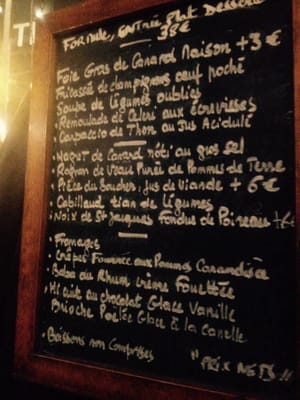 Formule, entrée Plat Dessert
38€
Foie Gras de Canard Maison +3€
Fricassée de champignons oeuf poché
Soupe de légumes oubliés
• Remoulade de Celeri aux écrevisses
• Carpaccio de Thon au Jus Acidulé
• Magret de Canard rôti au gros sel
• Rognon de Veau Purée de Pommes de Terre
• Pièce du Boucher, Jus de Viande + 6€
• Cabillaud tian de légumes
• Noix de St Jacques Fondue de Poireau +6
• Fromages
• Crêpes Fourrées aux Pommes
• Baba du Rhum crème Fouettée
• Mi cuit au chocolat Glace Vanille
Brioche Poêlée Glace à la canelle
• Boissons non Comprises
"PRIX NETS"